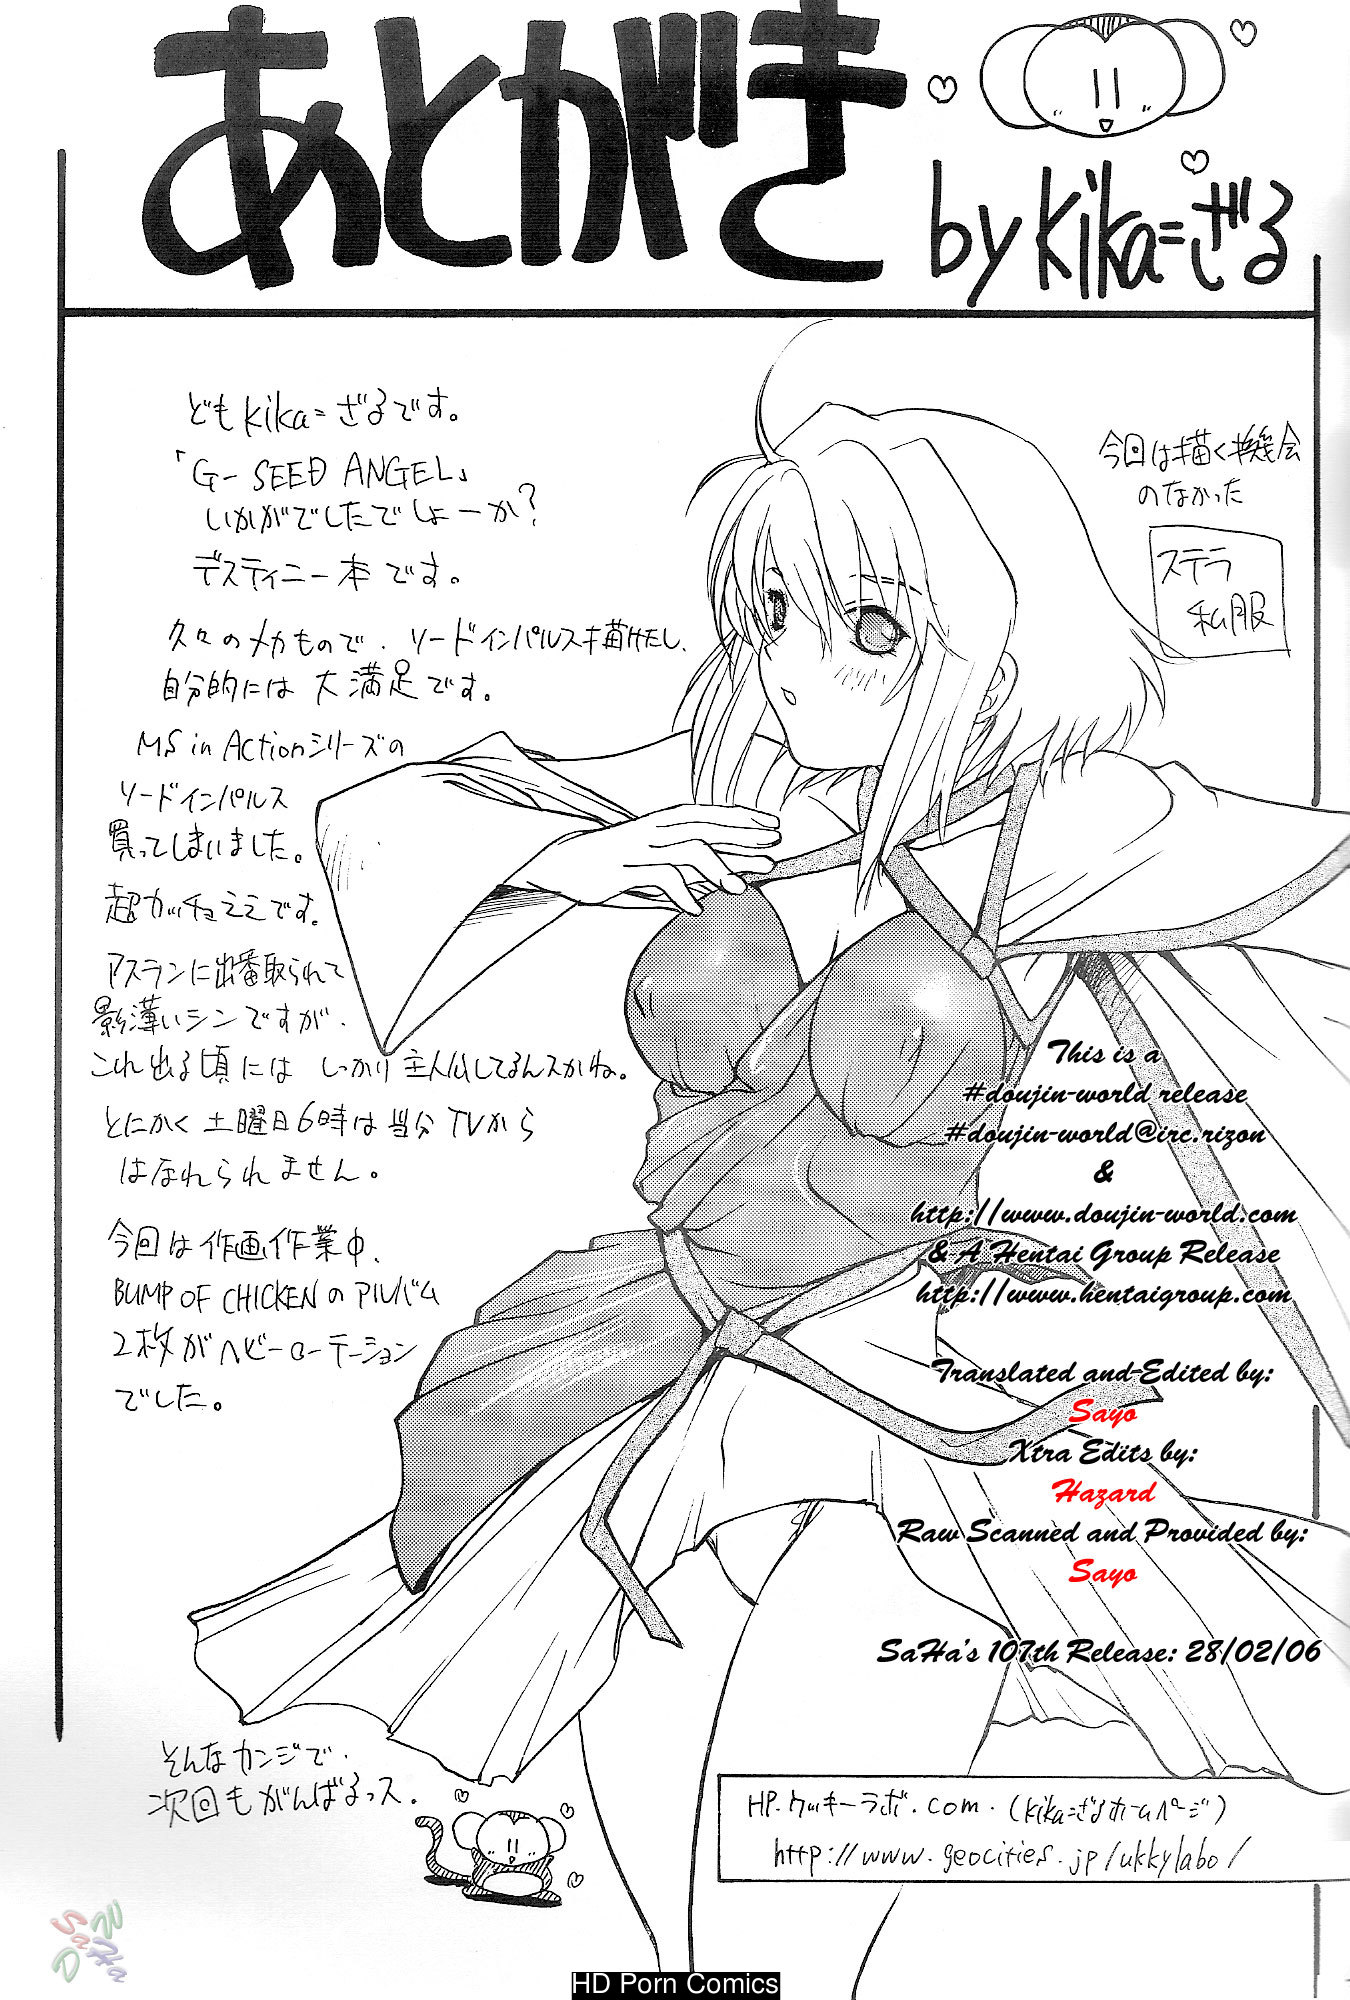 あとがき
by kika=ざる
どもkika=ざるです。
「G-SEED ANGEL」
いかがでしたでしょーか?
デスティニー本です。
久々のメカもので、ソードインパルス描けたし、
自分的には大満足です。
MS in Actionシリーズの
ソードインパルス
買ってしまいました。
超カッチョええです。
アスランに出番取られて
影薄いシンですが、
これ出る頃にはしっかり主人公してるんスかね。
とにかく土曜日6時は当分TVから
はなれられません。
今回は作画作業中、
BUMP OF CHICKENのアルバム
2枚がヘビーローテーション
でした。
そんなカンジで、
次回もがんばるっス。
今回は描く機会
のなかった
ステラ
私服
This is a
#doujin-world release
#doujin-world@irc.rizon
&
http://www.doujin-world.com
& A Hentai Group Release
http://www.hentaigroup.com
Translated and Edited by:
Sayo
Xtra Edits by:
Hazard
Raw Scanned and Provided by:
Sayo
SaHa's 107th Release: 28/02/06
HP.ウッキーラボ.com.(kika=ざるホームページ)
http://www.geocities.jp/ukkylabo/
SaHa
DW
HD Porn Comics